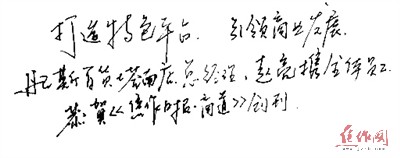 打造特色平台 引领商业发展
丹尼斯百货七茗雨店总经理、赵亮携全体员工
恭贺《焦作日报·商道》创刊
焦作网